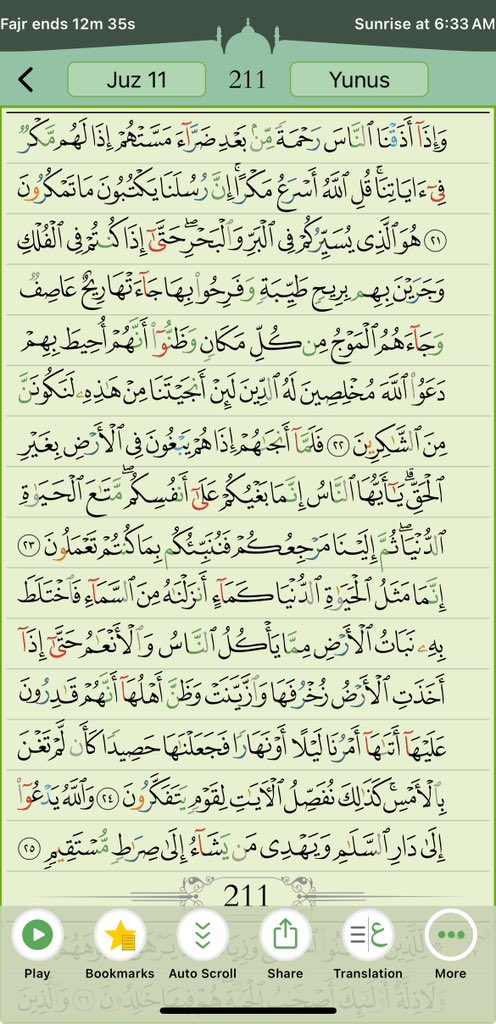 Fajr ends 12m 35s
Sunrise at 6:33 AM
Juz 11
211
Yunus
وَإِذَآ أَذَقْنَا ٱلنَّاسَ رَحْمَةً مِّنۢ بَعْدِ ضَرَّآءَ مَسَّتْهُمْ إِذَا لَهُم مَّكْرٌ
فِىٓ ءَايَاتِنَا ۚ قُلِ ٱللَّهُ أَسْرَعُ مَكْرًا ۚ إِنَّ رُسُلَنَا يَكْتُبُونَ مَا تَمْكُرُونَ
٢١ هُوَ ٱلَّذِى يُسَيِّرُكُمْ فِى ٱلْبَرِّ وَٱلْبَحْرِ ۖ حَتَّىٰٓ إِذَا كُنتُمْ فِى ٱلْفُلْكِ
وَجَرَيْنَ بِهِم بِرِيحٍ طَيِّبَةٍ وَفَرِحُوا۟ بِهَا جَآءَتْهَا رِيحٌ عَاصِفٌ
وَجَآءَهُمُ ٱلْمَوْجُ مِن كُلِّ مَكَانٍ وَظَنُّوٓا۟ أَنَّهُمْ أُحِيطَ بِهِمْ
دَعَوُا۟ ٱللَّهَ مُخْلِصِينَ لَهُ ٱلدِّينَ لَئِنْ أَنجَيْتَنَا مِنْ هَـٰذِهِۦ لَنَكُونَنَّ
مِنَ ٱلشَّـٰكِرِينَ ٢٢ فَلَمَّآ أَنجَىٰهُمْ إِذَا هُمْ يَبْغُونَ فِى ٱلْأَرْضِ بِغَيْرِ
ٱلْحَقِّ ۗ يَـٰٓأَيُّهَا ٱلنَّاسُ إِنَّمَا بَغْيُكُمْ عَلَىٰٓ أَنفُسِكُم ۖ مَّتَـٰعَ ٱلْحَيَوٰةِ
ٱلدُّنْيَا ۖ ثُمَّ إِلَيْنَا مَرْجِعُكُمْ فَنُنَبِّئُكُم بِمَا كُنتُمْ تَعْمَلُونَ ٢٣
إِنَّمَا مَثَلُ ٱلْحَيَوٰةِ ٱلدُّنْيَا كَمَآءٍ أَنزَلْنَـٰهُ مِنَ ٱلسَّمَآءِ فَٱخْتَلَطَ
بِهِۦ نَبَاتُ ٱلْأَرْضِ مِمَّا يَأْكُلُ ٱلنَّاسُ وَٱلْأَنْعَـٰمُ حَتَّىٰٓ إِذَآ
أَخَذَتِ ٱلْأَرْضُ زُخْرُفَهَا وَٱزَّيَّنَتْ وَظَنَّ أَهْلُهَآ أَنَّهُمْ قَـٰدِرُونَ
عَلَيْهَآ أَتَىٰهَآ أَمْرُنَا لَيْلًا أَوْ نَهَارًا فَجَعَلْنَـٰهَا حَصِيدًا كَأَن لَّمْ تَغْنَ
بِٱلْأَمْسِ ۚ كَذَٰلِكَ نُفَصِّلُ ٱلْـَٔايَـٰتِ لِقَوْمٍ يَتَفَكَّرُونَ ٢٤ وَٱللَّهُ يَدْعُوٓا۟
إِلَىٰ دَارِ ٱلسَّلَـٰمِ وَيَهْدِى مَن يَشَآءُ إِلَىٰ صِرَٰطٍ مُّسْتَقِيمٍ ٢٥
211
Play
Bookmarks
Auto Scroll
Share
ع
Translation
More